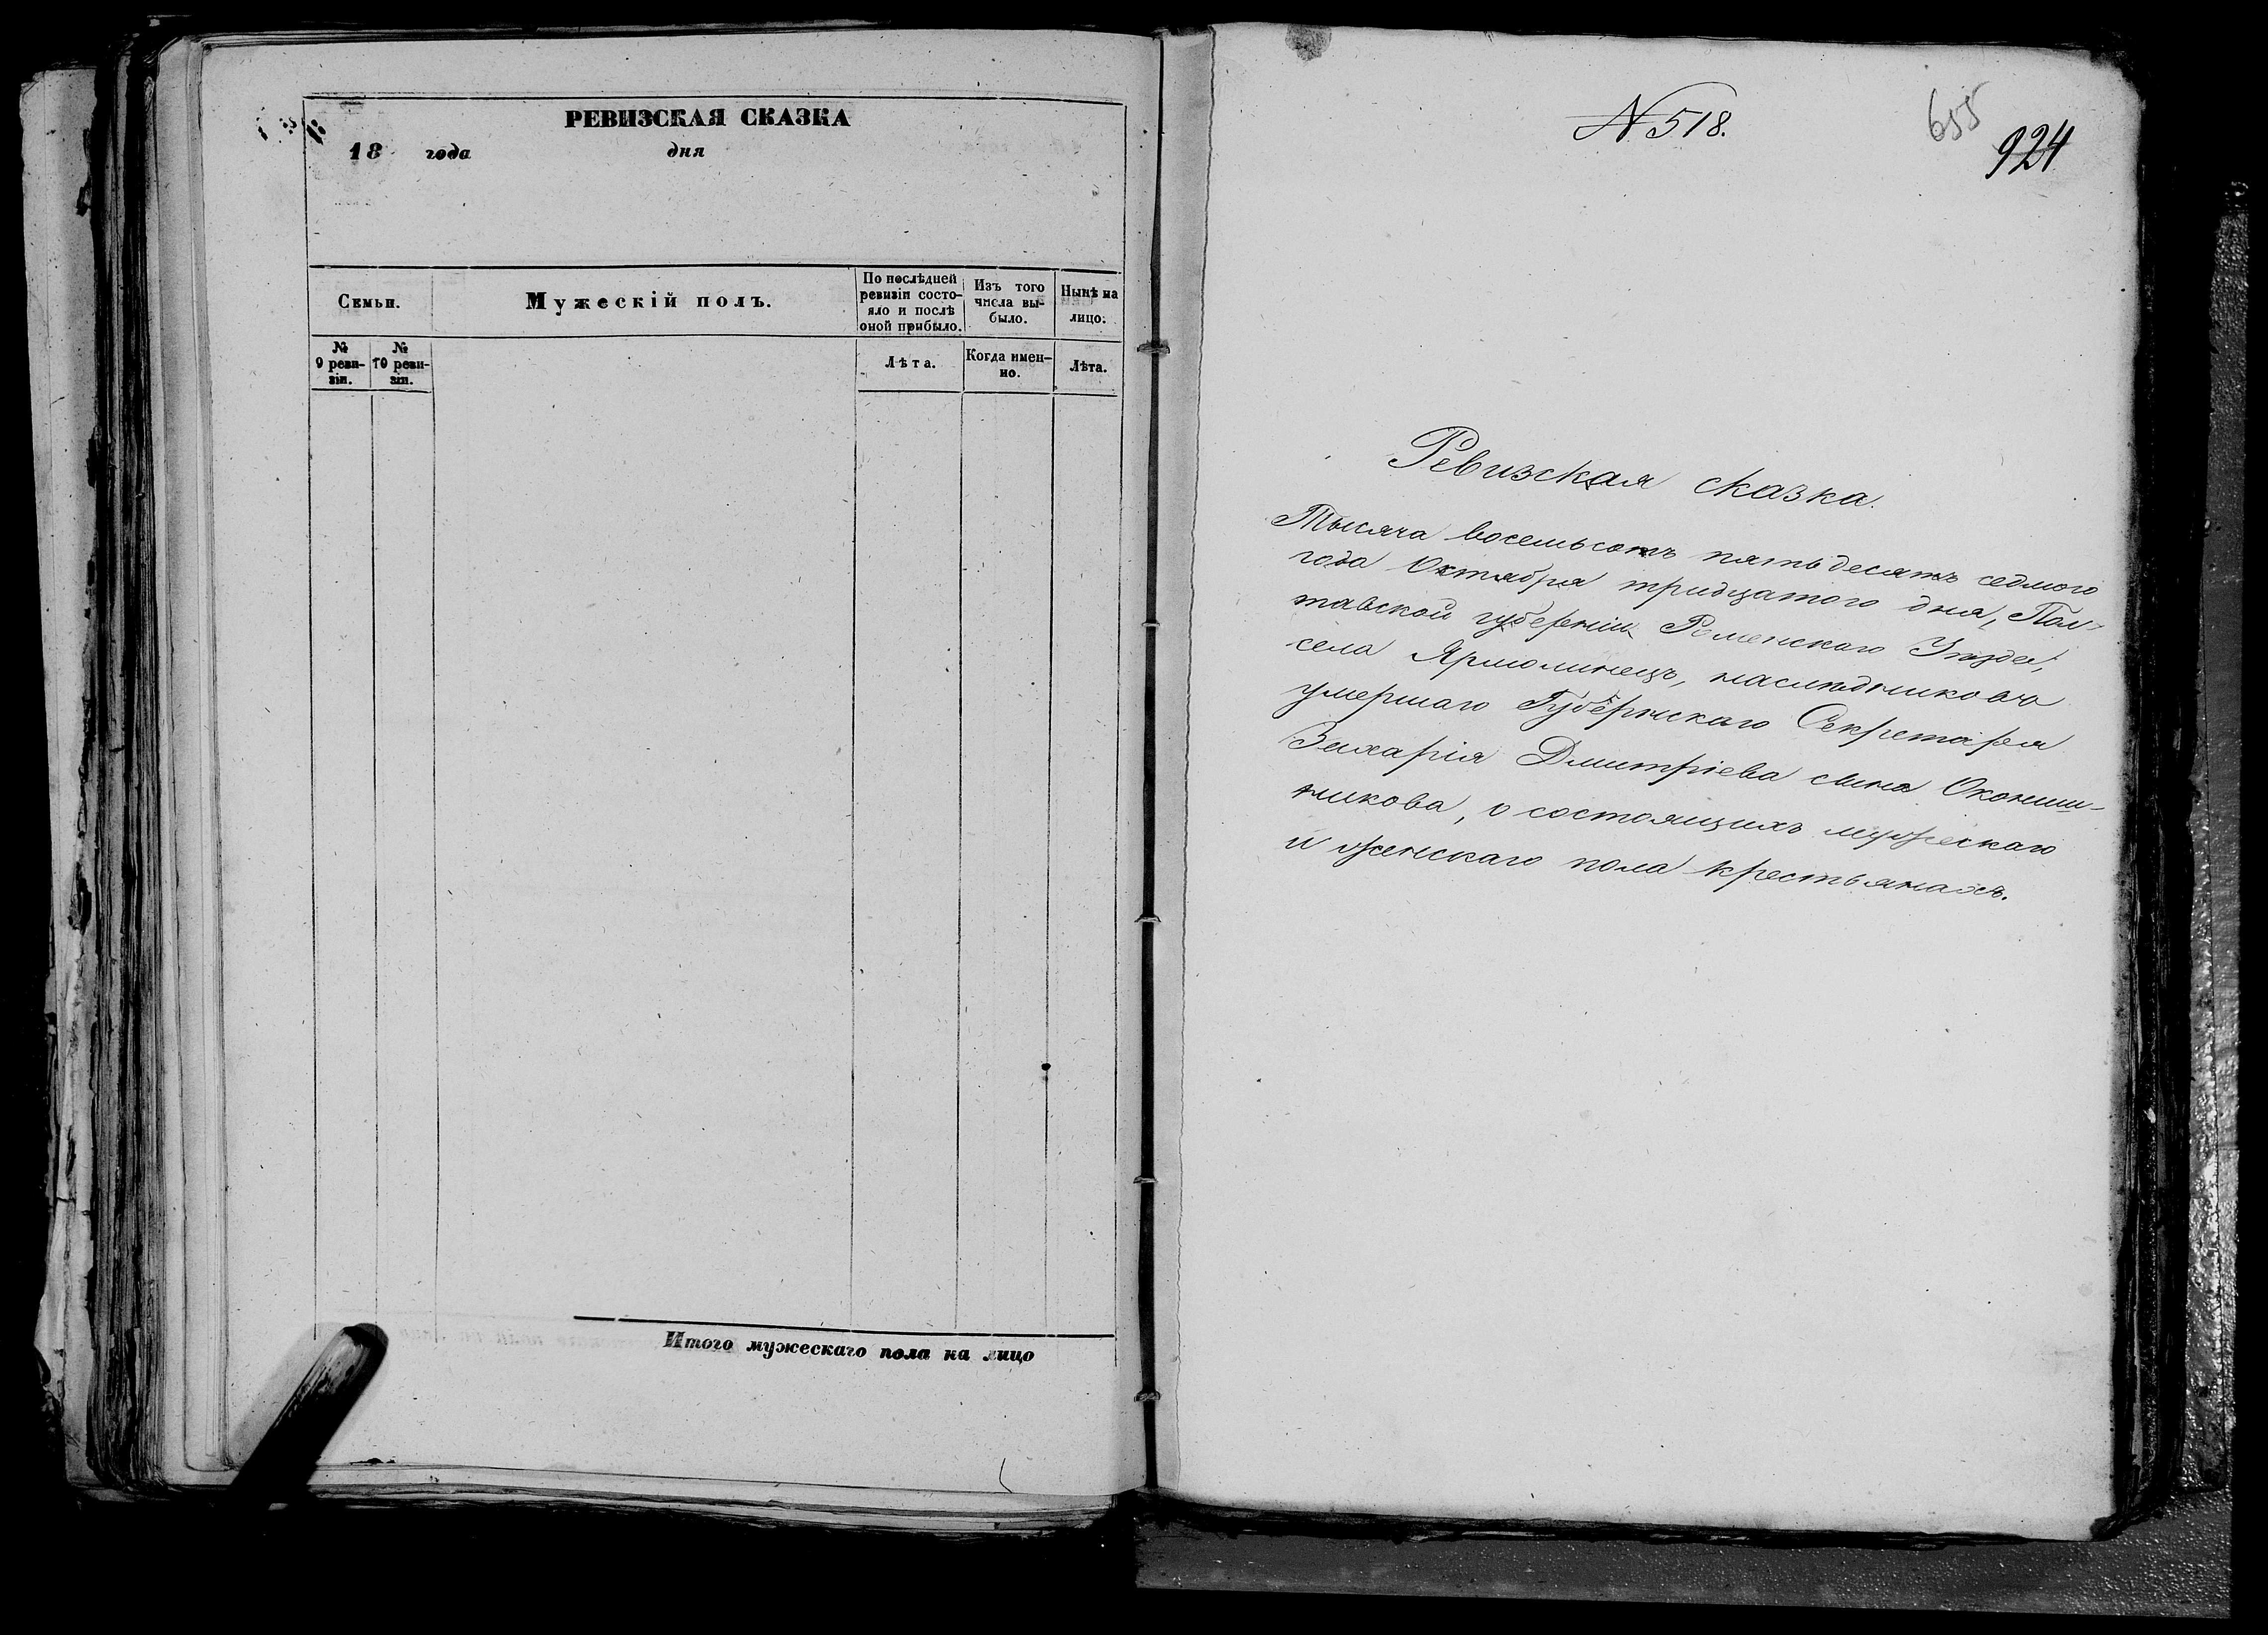 РЕВИЗСКАЯ СКАЗКА
18 года дня
Семьи.
Мужескій полъ.
По послѣдней
ревизіи состо-
яло и послѣ
оной прибыло.
Изъ того
числа вы-
было.
Нынѣ на
лицо.
№
9 реви-
зіи.
№
10 реви-
зіи.
Лѣта.
Когда имен-
но.
Лѣта.
Итого мужескаго пола на лицо
N 518.
655
924
Ревизская сказка.
Тысяча восемьсотъ пятьдесятъ седмого
года Октября тридцатого дня, Пол-
тавской губерніи Роменскаго Уѣзда,
села Ярмолинецъ, наслѣдниковъ
умершаго Губернскаго Секретаря
Захарія Дмитріева сына Окониш-
никова, о состоящихъ мужескаго
и женскаго пола крестьянахъ.